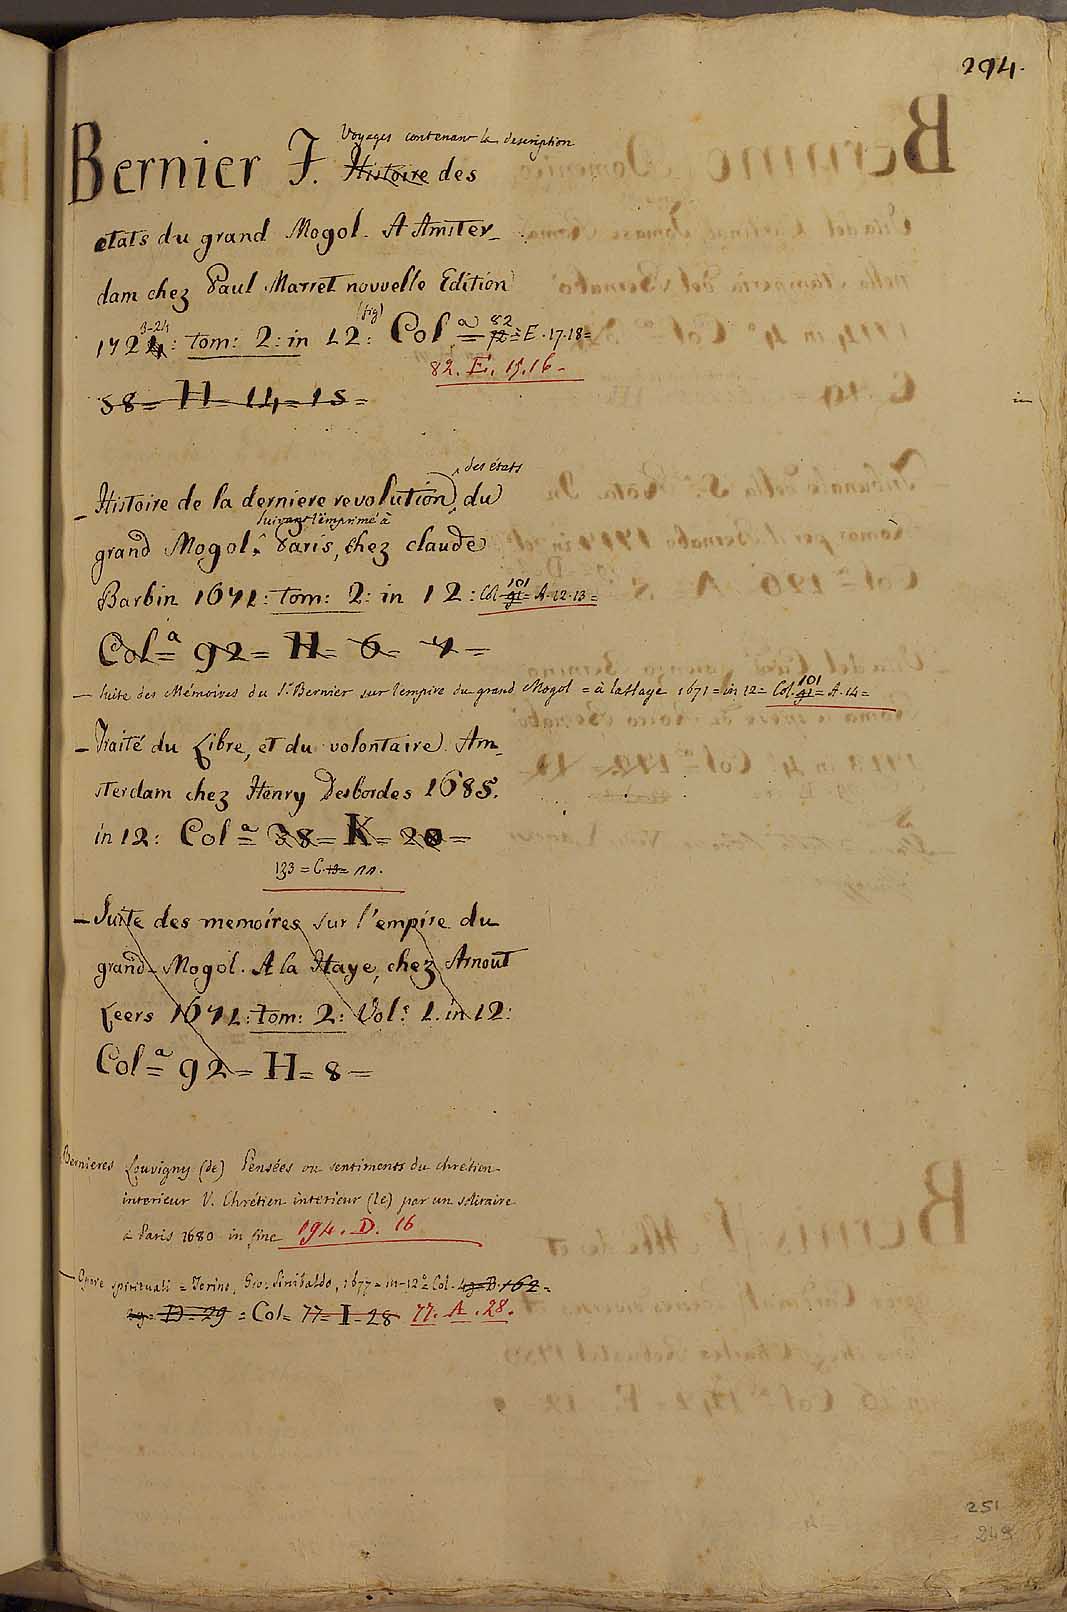 294.
Voyages contenant la description
Bernier F. Histoire des
etats du grand Mogol. A Amster_
dam chez Paul Marret nouvelle Edition
3-24 (fig) 82
1724: tom: 2: in 12: Col.a = 72 = E. 17.18=
82. E. 15.16-
58= H= 14= 15=
des états
- Histoire de la derniere revolution, du
suivant l'imprimé à
grand Mogol. Paris, chez claude
101
Barbin 1671: tom: 2: in 12: Col. 91= A-12.13=
Col.a= 92= H= 6= 7=
101
- Suite des Mémoires du Sr Bernier sur l'empire du grand Mogol = à la Haye 1671= in 12= Col. 91= A.14=
- Traité du Libre, et du volontaire. Am_
sterdam chez Henry Desbordes 1685.
in 12: Col.a= 38= K= 20=
133 = C. 13= 11.
- Suite des memoires sur l'empire du
grand Mogol. A la Haye, chez Arnout
Leers 1671: tom: 2: Vol: 1. in 12:
Col.a= 92= H= 8=
Bernieres Louvigny (de) Pensées ou sentiments du chrétien
interieur V. Chrétien interieur (le) par un solitaire
à Paris 1680 in fine 194. D. 16
- Opere spirituali = Torino, Gio: Sinibaldo, 1677= in-12°= Col. 43= D. 162=
29= D= 29 = Col= 77= I= 28 77. A. 28.
251
249